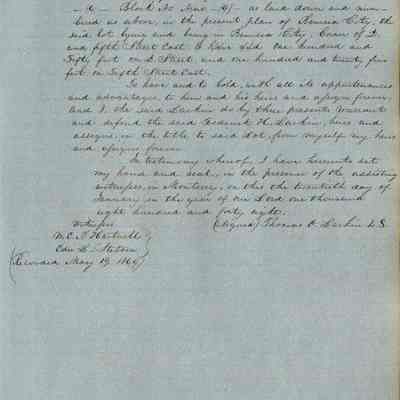 - (2) - Block No Nine - (9) - as laid down and num-
bered as above, in the present plan of Benicia City, the
said lot lying and being in Benicia City, Corner of D.
and fifth Street East. To Have &ld one hundred and
Fifty feet on D Street and one hundred and twenty five
feet on Fifth Street East.
To have and to hold, with all its appurtenances
and advantages, to him and his heirs and assigns forever,
and I the said Larkin do by these presents warrant
and defend the said Frederick H. Larkin, heirs and
assigns, in the title to said lot, from myself my heirs
and assigns forever.
In testimony whereof, I have hereunto set
my hand and seal, in the presence of the assisting
witnesses, in Monterey, on this the twentieth day of
January in the year of our Lord one thousand
eight hundred and forty eight.
Witnesses (Signed) Thomas O. Larkin L.S.
W. E. P. Hartnell
Edw. L. Stetson
(Recorded May 19, 1849)